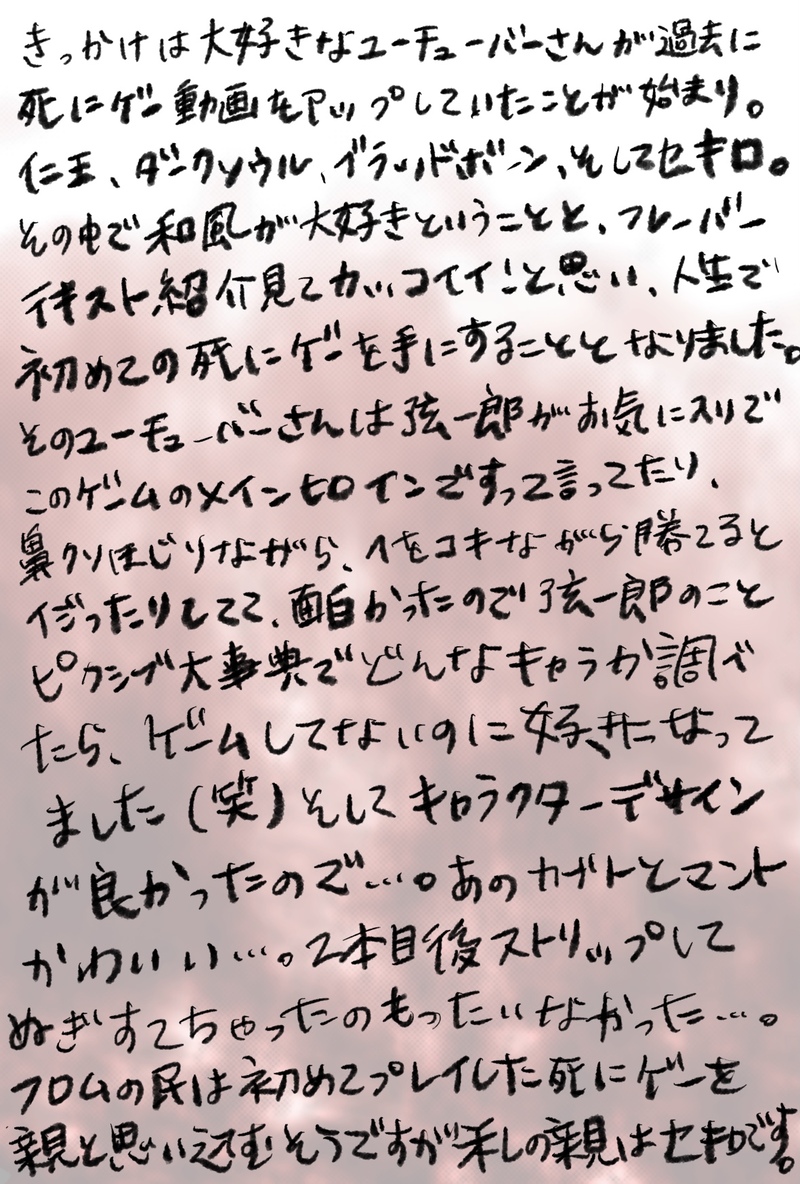 きっかけは大好きなユーチューバーさんが過去に
死にゲー動画をアップしていたことが始まり。
仁王、ダークソウル、ブラッドボーン、そしてセキロ。
その中で和風が大好きということと、フレーバー
テキスト紹介見てカッコイイ!と思い、人生で
初めての死にゲーを手にすることとなりました。
そのユーチューバーさんは弦一郎がお気に入りで
このゲームのメインヒロインですって言ってたり、
鼻クソほじりながら、へをコキながら勝てると
イジったりしてて、面白かったので弦一郎のこと
ピクシブ大事典でどんなキャラか調べ
たら、ゲームしてないのに好きになって
ました(笑)そしてキャラクターデザイン
が良かったので…。あのカブトとマント
かわいい…。2本目後ストリップして
ぬぎすてちゃったのもったいなかった…。
フロムの民は初めてプレイした死にゲーを
親と思い込むそうですが私の親はセキロです。